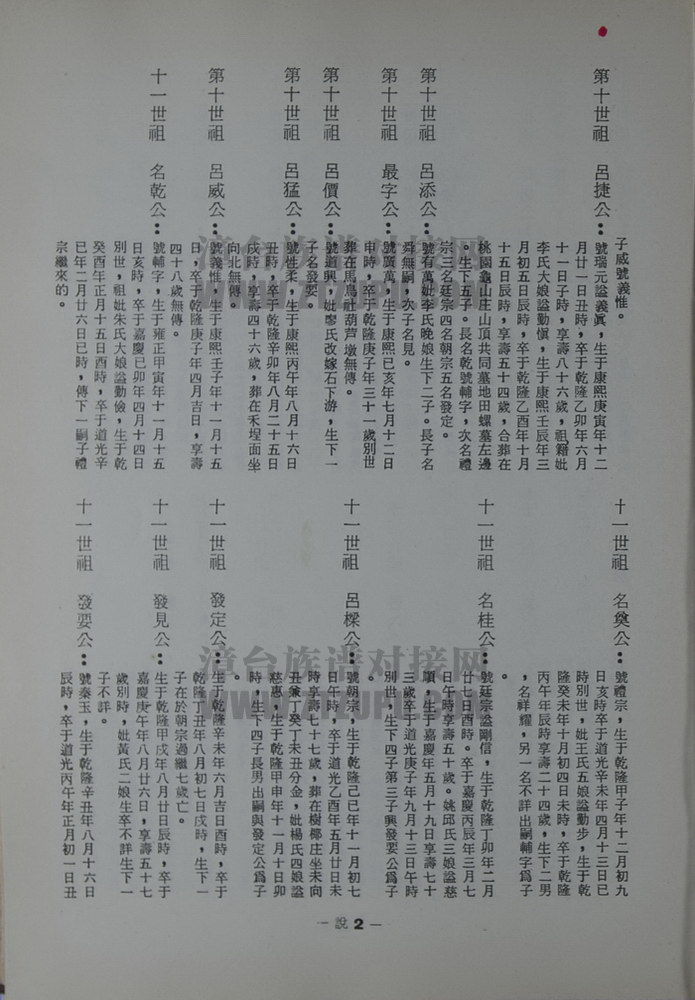 子威號義惟。
第十世祖 呂捷公：號瑞元諡義眞，生于康熙庚寅年十二
月廿一日丑時，卒于乾隆乙卯年六月
十一日子時，享壽八十六歲，祖籍妣
李氏大娘諡勤愼，生于康熙壬辰年三
月初五日辰時，卒于乾隆乙酉年十月
十五日辰時，享壽五十四歲，合葬在
桃園龜山庄山頂共同墓地田螺墓左邊
。生下五子。長名乾號輔字，次名禮
宗三名廷宗四名朝宗五名發定。
第十世祖 呂添公：號有萬妣李氏晚娘生下二子。長子名
舜無嗣，次子名見。
第十世祖 最字公：號廣萬，生于康熙己亥年七月十二日
申時，卒于乾隆庚子年三十一歲別世
葬在馬馬社葫芦墩無傳。
第十世祖 呂價公：號道興，妣廖氏改嫁石下游，生下一
子名發要。
第十世祖 呂猛公：號性柔，生于康熙丙午年八月十六日
丑時，卒于乾隆辛卯年八月二十五日
戌時，享壽四十六歲，葬在禾埕面坐
向北無傳。
第十世祖 呂威公：號義惟，生于康熙壬子年十一月十五
日，卒于乾隆庚子年四月吉日，享壽
四十八歲無傳。
十一世祖 名乾公：號輔字，生于雍正甲寅年十一月十五
日亥時，卒于嘉慶己卯年四月十四日
別世，祖妣朱氏大娘諡勤儉，生于乾
癸酉年正月十五日酉時，卒于道光辛
巳年二月廿六日巳時，傳下一嗣子禮
宗繼來的。
十一世祖 名奠公：號禮宗，生于乾隆甲子年十二月初九
日亥時卒于道光辛未年四月十三日巳
時別世，妣王氏五娘諡勤步，生于乾
隆癸未年十月初四日未時，卒于乾隆
丙午年辰時享壽二十四歲，生下二男
，名祥耀，另一名不詳出嗣輔字爲子
。
十一世祖 名桂公：號廷宗諡剛信，生于乾隆丁卯年二月
廿七日酉時。卒于嘉慶丙辰年三月七
日午時享壽五十歲。姚邱氏三娘諡慈
順，生于嘉慶年五月十九日享壽七十
三歲卒于道光庚子年九月十三日午時
別世，生下四子第三子興發要公爲子
。
十一世祖 呂樑公：號朝宗，生于乾隆己巳年十一月初七
日午時，卒于道光乙酉年五月廿日未
時享壽七十七歲，葬在樹椰庄坐未向
丑兼丁癸丁未丑分金，妣楊氏四娘諡
慈惠，生于乾隆甲申年十一月十日卯
時，生下四子長男出嗣與發定公爲子
。
十一世祖 發定公：生于乾隆辛未年六月吉日酉時，卒于
乾隆丁丑年八月初七日戌時，生下一
子在於朝宗過繼七歲亡。
十一世祖 發見公：生于乾隆甲戌年八月廿日辰時，卒于
嘉慶庚午年八月廿六日，享壽五十七
歲別時，妣黃氏二娘生卒不詳生下一
子不詳。
十一世祖 發要公：號秦玉，生于乾隆辛丑年八月十六日
辰時，卒于道光丙午年正月初一日丑
— 說 2 —
漳台族谱对接网
漳台族谱对接网